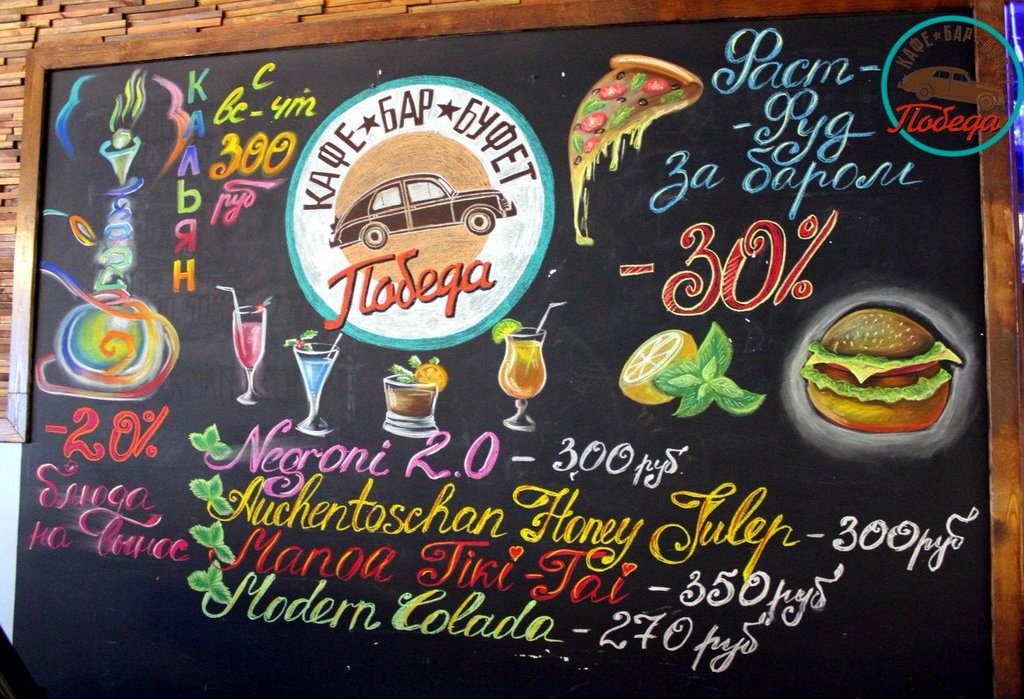 КАЛЬЯН
с
вс-чт
300
руб
КАФЕ★БАР★БУФЕТ
Победа
Фаст-
-Фуд
За баром
-30%
КАФЕ★БАР★БУФЕТ
Победа
-20%
блюда
на вынос
Negroni 2.0 - 300 руб.
Auchentoschan Honey Julep - 300 руб
Manoa Tiki-Tai - 350 руб
Modern Colada - 270 руб